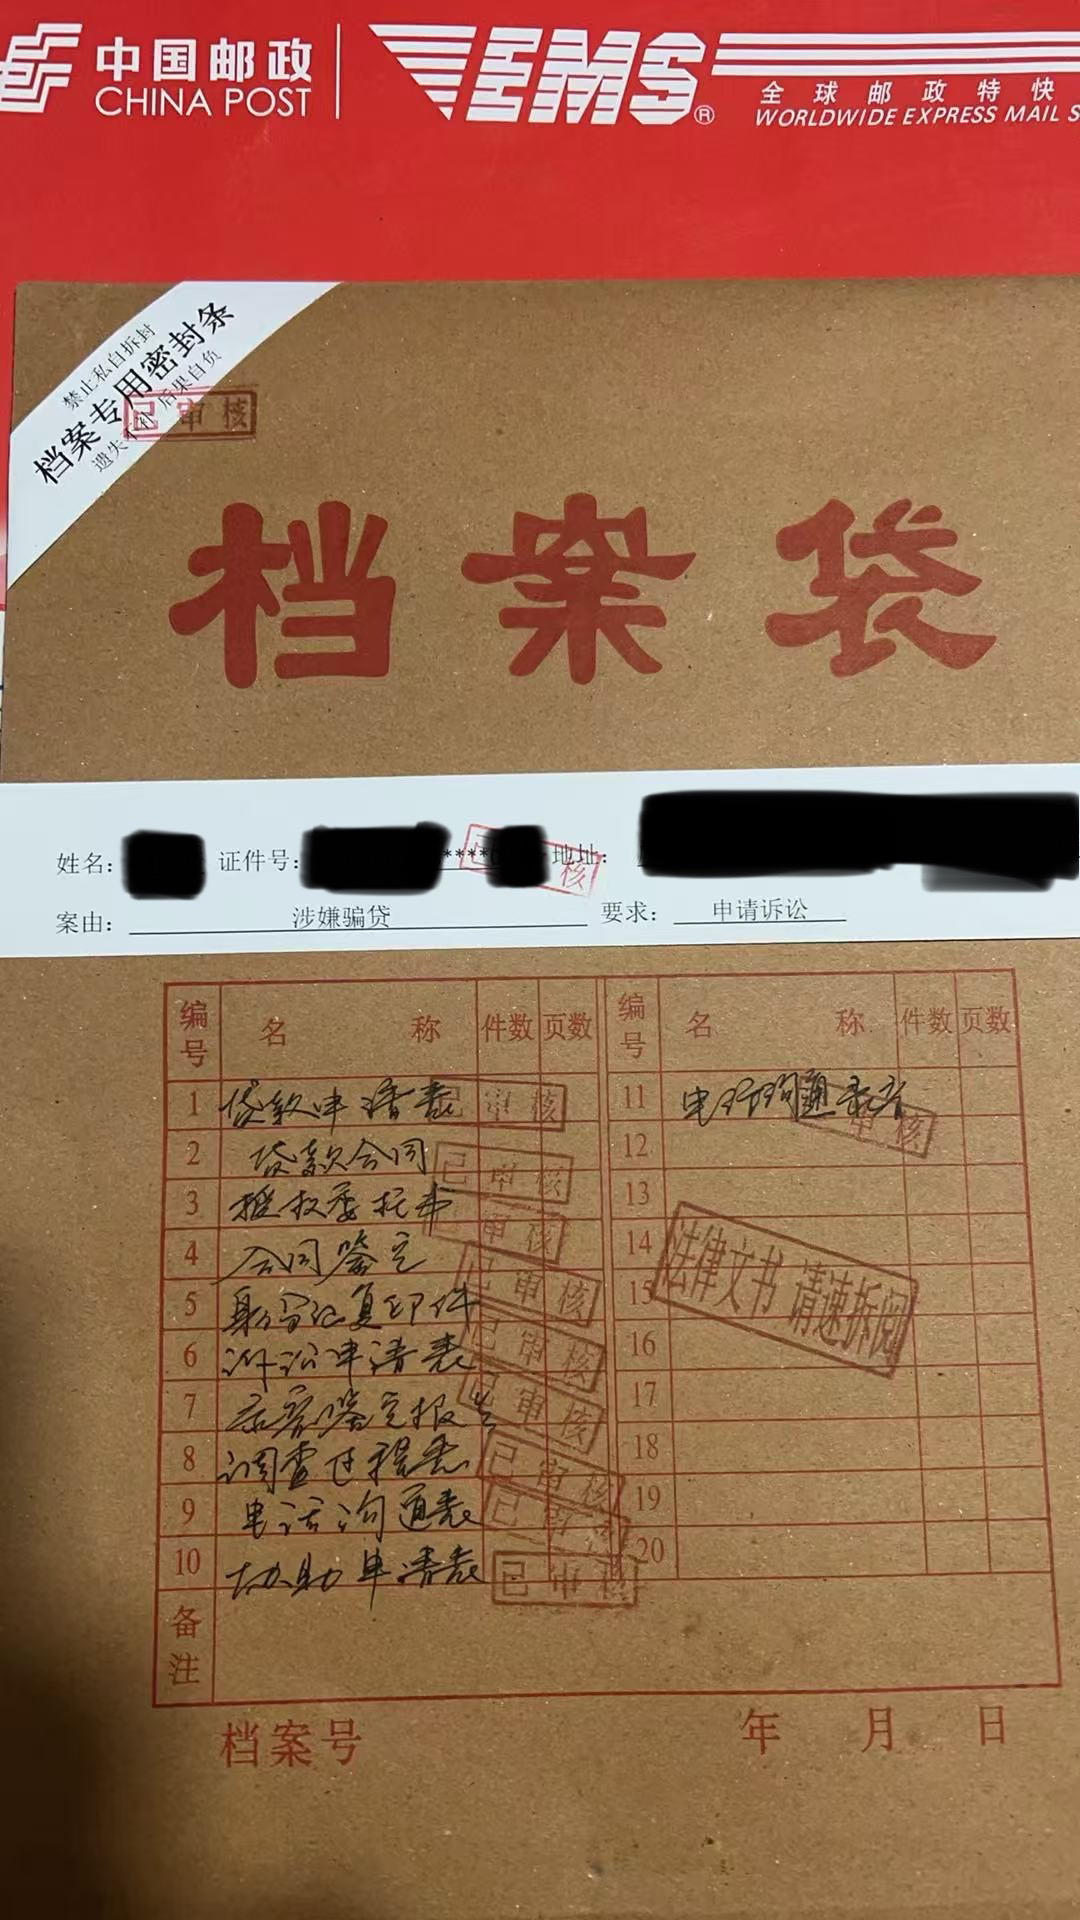 中国邮政
CHINA POST
EMS®
全球邮政特快
WORLDWIDE EXPRESS MAIL S
禁止私自拆封
档案专用密封条
遗失不补 后果自负
已审核
档案袋
姓名: 证件号: ****0 地址:
已 核
案由: 涉嫌骗贷 要求: 申请诉讼
编号 名称 件数 页数 编号 名称 件数 页数
1 贷款申请表 已审核 11 审核
2 贷款合同 已审核 12
3 授权委托书 审核 13
4 合同鉴定 已审核 14
5 身份证复印件 已审核 15
法律文书 请速拆阅
6 诉讼申请表 已审核 16
7 鉴定报告 已审核 17
8 调查过程表 已审核 18
9 电话沟通表 已审 19
10 协助申请表 已审核 20
备注
档案号 年 月 日